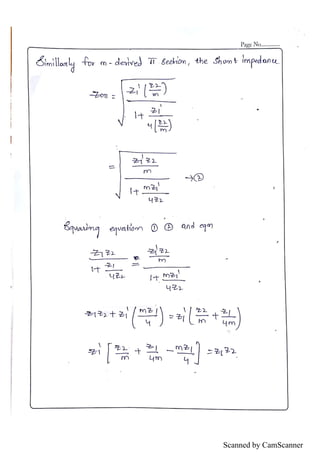 Page No.............
Similarly for m-derived π Section, the Shunt impedance
Zoπ = √( Z1' (Z2/m) / (1 + Z1' / 4(Z2/m)) )
= √( (Z1' Z2 / m) / (1 + mZ1' / 4Z2) ) → ②
Equating equation ① ② and eqn
Z1 Z2 / (1 + Z1/4Z2) = (Z1' Z2 / m) / (1 + mZ1' / 4Z2)
Z1Z2 + Z1' (mZ1 / 4) = Z1' (Z2/m + Z1/4m)
Z1' [ Z2/m + Z1/4m - mZ1/4 ] = Z1Z2
Scanned by CamScanner